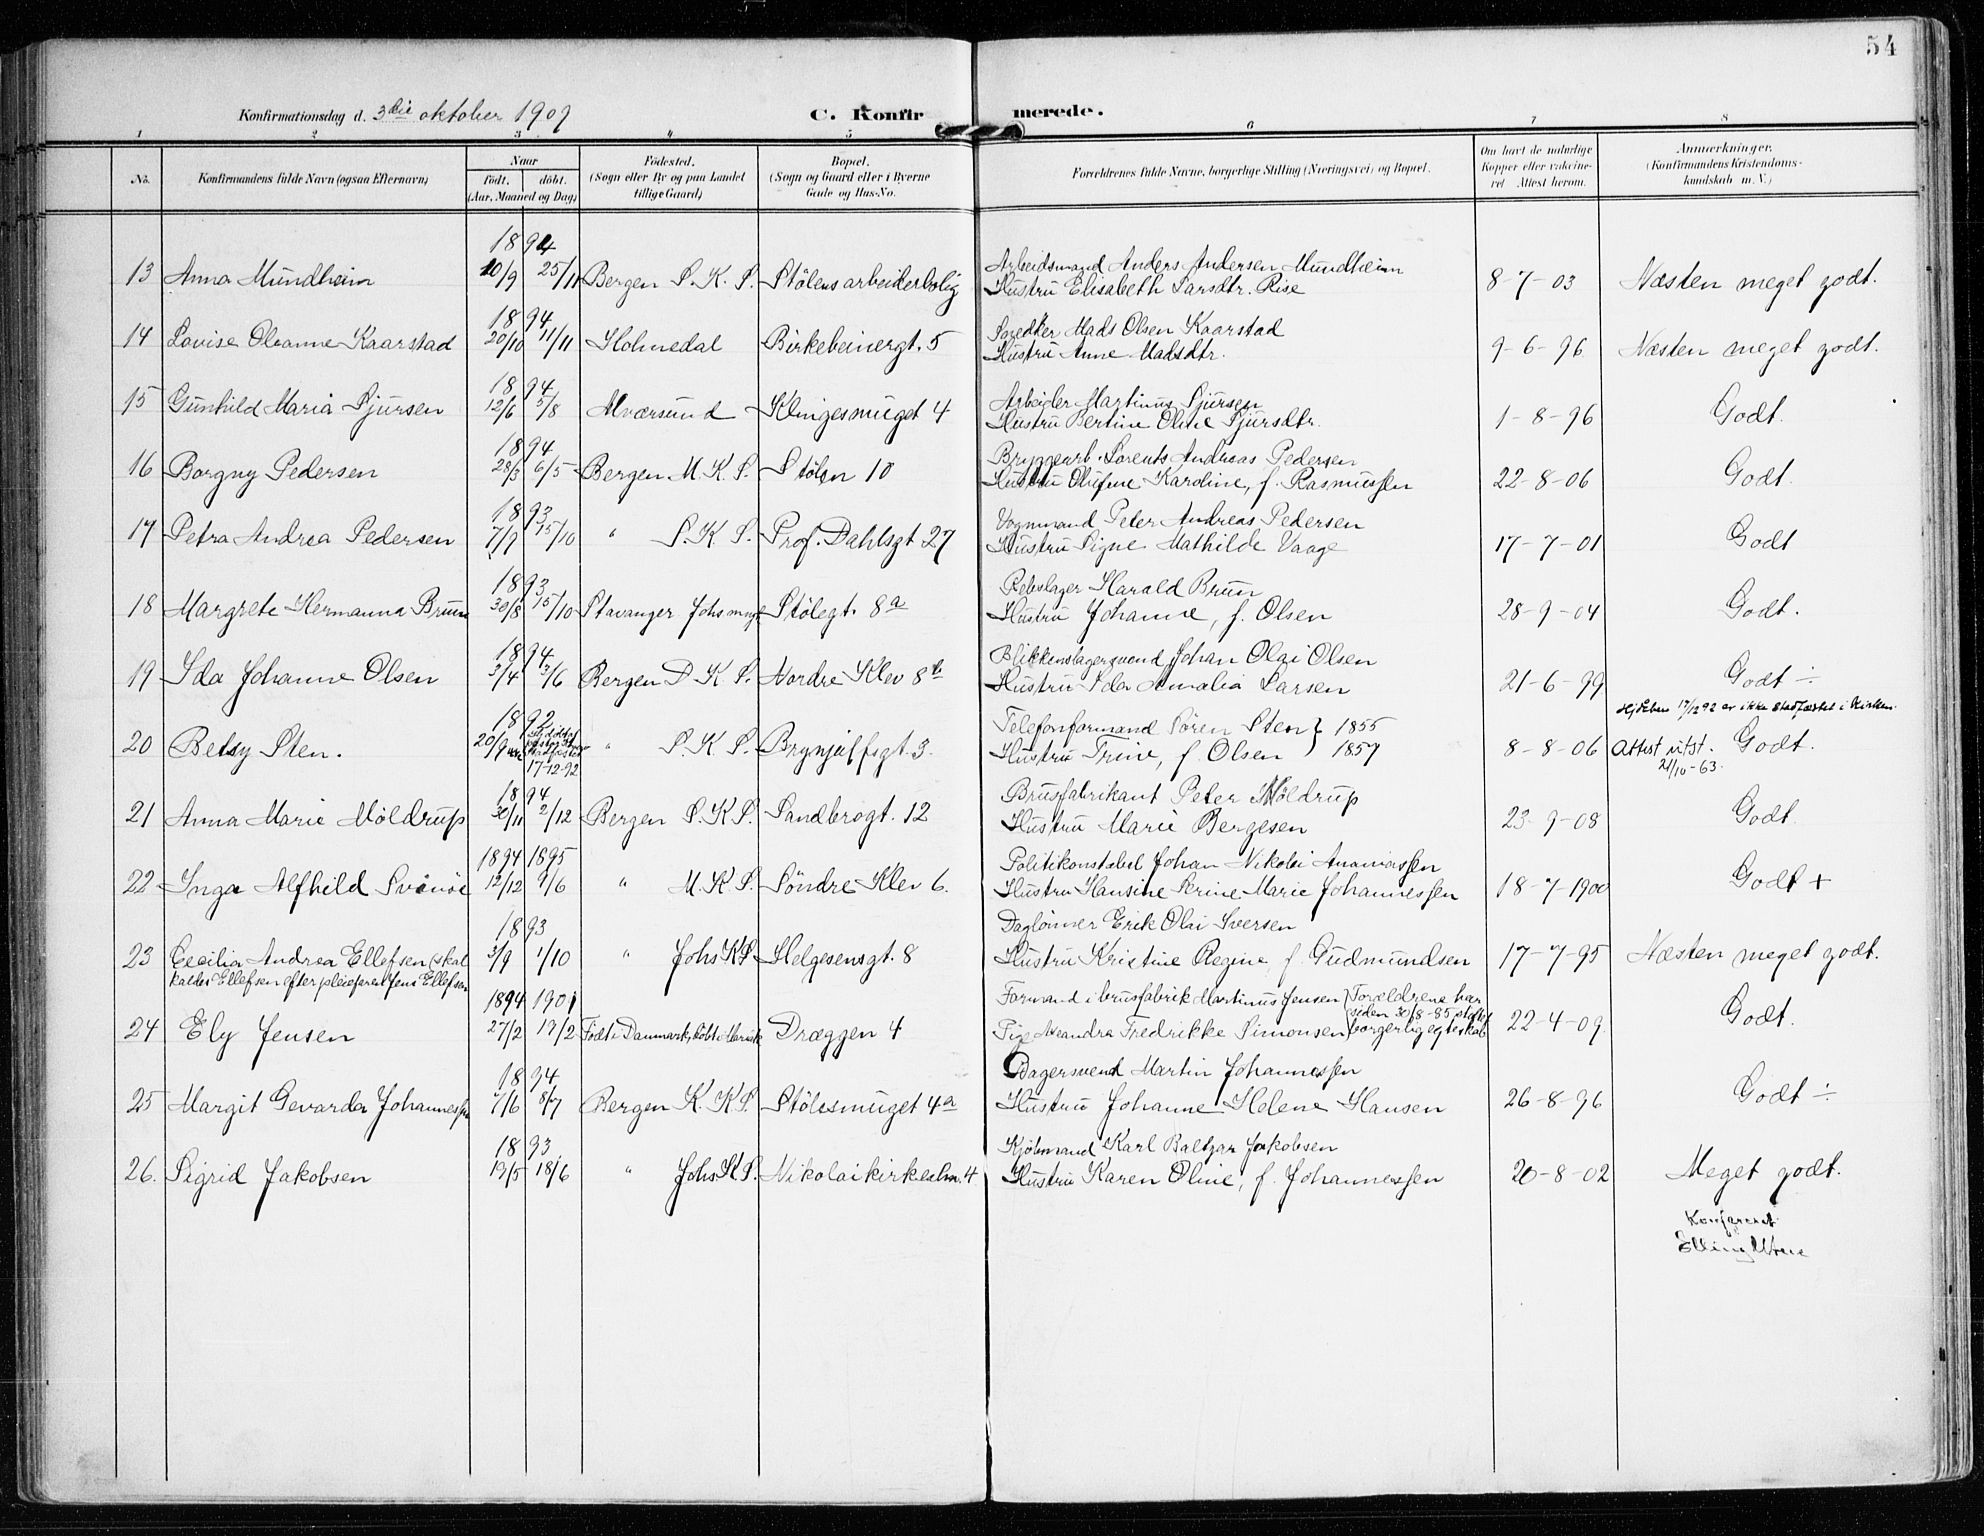 54
Konfirmationsdag d. 3die oktober 1909
C. Konfirmerede.
1 2 3 4 5 6 7 8
No.
Konfirmandens fulde Navn (ogsaa Efternavn)
Naar
født. døbt.
(Aar, Maaned og Dag)
Fødested.
(Sogn eller By og paa Landet
tillige Gaard)
Bopæl.
(Sogn og Gaard eller i Byerne
Gade og Hus-No.
Forældrenes fulde Navne, borgerlige Stilling (Næringsvei) og Bopæl.
Om havt de naturlige
Kopper eller vakcine-
ret Attest herom.
Anmærkninger.
(Konfirmandens Kristendoms-
kundskab m. V.)
1894
13 Anna Mundheim 20/9 25/11 Bergen S. K. S. Stølens arbeiderbolig
Arbeidsmand Anders Andersen Mundheim
Hustru Elisabeth Larsdtr. Rise
8-7-03 Næsten meget godt.
1894
14 Lovise Oleanne Kaarstad 20/10 11/11 Holmedal Birkebeinergt. 5
Snedker Mads Olsen Kaarstad
Hustru Anne Madsdtr.
9-6-96 Næsten meget godt.
1894
15 Gunhild Maria Sjursen 12/6 5/8 Alværsund Klingesmuget 4
Arbeider Martinus Sjursen
Hustru Bertine Oline Sjursdtr.
1-8-96 Godt.
1894
16 Borgny Pedersen 28/3 6/5 Bergen M. K. S. Stølen 10
Bryggearb. Lorents Andreas Pedersen
Hustru Olufine Karoline, f. Rasmussen
22-8-06 Godt.
1893
17 Petra Andrea Pedersen 7/9 15/10 " S. K. S. Prof. Dahlsgt 27
Vognmand Peter Andreas Pedersen
Hustru Signe Mathilde Vaage
17-7-01 Godt
1893
18 Margrete Hermanna Bruun 30/8 15/10 Stavanger Johs mgt Stølegt. 8a
Rebslager Harald Brun
Hustru Johanne, f. Olsen
28-9-04 Godt.
1894
19 Ida Johanne Olsen 3/4 3/6 Bergen D K S. Nordre Klev 8b
Blikkenslagersvend Johan Olai Olsen
Hustru Ida Amalia Larsen
21-6-99 Godt ÷
Hj.døben 17/12 92 er ikke stadfæstet i Kirken.
1892
20 Betsy Sten. 20/9 17-12-92 " S. K. S. Brynjulfsgt. 3.
Telefonformand Sören Sten } 1855
Hustru Trine, f. Olsen } 1857
8-8-06 Attest utst. Godt.
21/10-63.
1894
21 Anna Marie Möldrup 30/11 2/12 Bergen S. K. S. Sandbrogt. 12
Brusfabrikant Peter Möldrup
Hustru Marie Bergesen
23-9-08 Godt.
1894 1895
22 Inga Alfhild Svinöe 12/12 9/6 " M. K. S. Söndre Klev 6.
Politikonstabel Johan Nikolai Ananiassen
Hustru Hansine Serine Marie Johannessen
18-7-1900 Godt +
1893
23 Cecilia Andrea Ellefsen (skal
kaldes Ellefsen efter pleiefaren Jens Ellefsen 3/9 1/10 " Johs KS. Helgesensgt. 8
Daglønner Erik Olai Iversen
Hustru Kristine Regine, f. Gudmundsen
17-7-95 Næsten meget godt.
1894 1901
24 Ely Jensen 27/2 17/2 Født i Danmark, døbt i Mariæk Dræggen 4
Formand i brusfabrik Martinus Jensen } Forældrene har
siden 30/8-95 stiftet
Pige Aleandra Fredrikke Simonsen } borgerlig egteskab
22-4-09 Godt.
1894
25 Margit Gevarda Johannessen 7/6 8/7 Bergen K. K. S. Stølesmuget 4a
Bagersvend Martin Johannessen
Hustru Johanne Helene Hansen
26-8-96 Godt ÷
1893
26. Sigrid Jakobsen 19/5 18/6 " Johs K S. Nikolaikirkealm. 4
Kjöbmand Karl Baltzar Jakobsen
Hustru Karen Oline, f. Johannessen
20-8-02 Meget godt.
Konfereret